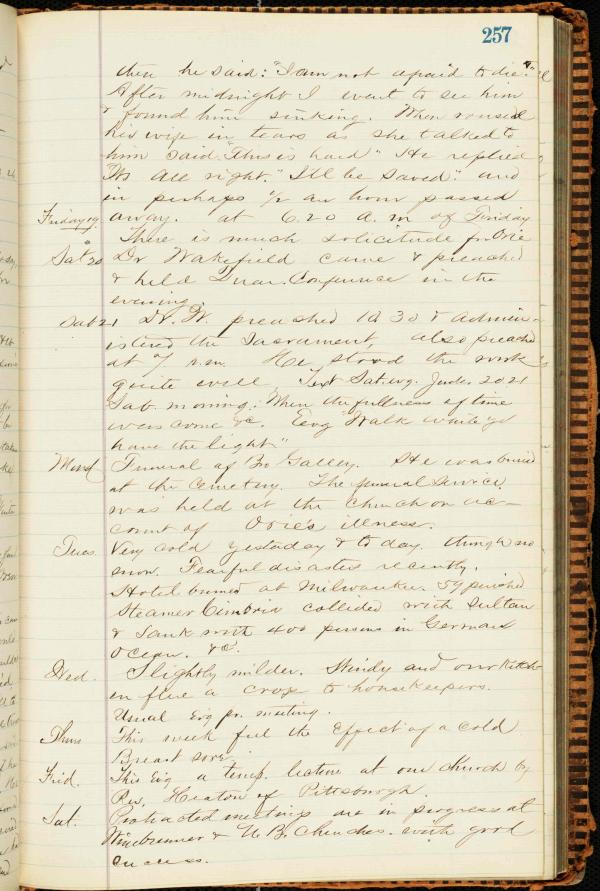 257
then he said: "I am not afraid to die."
After midnight I went to see him
& found him sinking. When roused
his wife in tears as she talked to
him said "This is hard" He replied
"It's all right." "I'll be saved" and
in perhaps 1/2 an hour passed
Friday 19. away. at 6.20 a.m of Friday
There is much solicitude for Orie
Sat 20 Dr Wakefield came & preached
& held Quar. Conference in the
evening.
Sab 21 Dr. W. preached 10 30 & admin-
istered the Sacrament, also preached
at 7 p.m. He stood the work
quite well. Text Sat. evg. Jude. 20 21
Sab. morning: When the fullness of time
was come &c. Evg "Walk while ye
have the light"
Mond Funeral of Bro Galley. He was buried
at the Cemetery. The funeral service
was held at the church on ac-
count of Orie's illness.
Tues. Very cold yestaday & to day. though no
snow. Fearful disasters recently.
Hotel burned at Milwaukee. 59 perished
Steamer Cimbria collided with Sultan
& sank with 400 persons in German
Ocean. &c.
Wed. Slightly milder. Windy and our kitch
en flue a cross to housekeepers.
Usual Evg pr. meeting.
Thurs This week feel the effect of a cold
Breast sore.
Frid. This Evg a temp. lecture at our church by
Rev. Heaton of Pittsburgh.
Sat. Protracted meetings are in progress at
Winebrenner & U. B. Churches. with good
success.